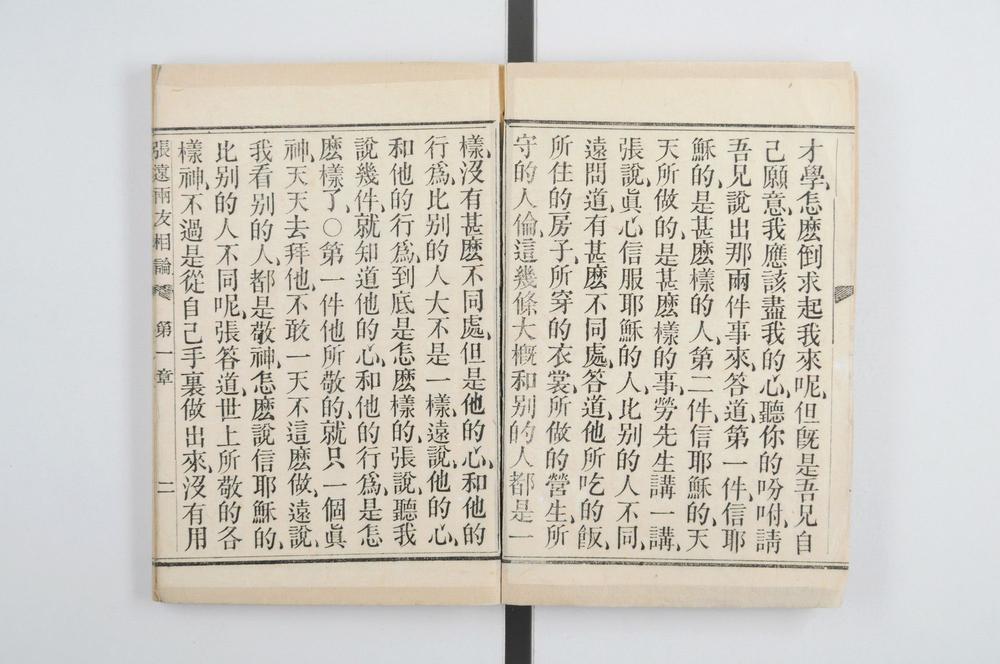 才學、怎麽倒求起我來呢、但旣是吾兄自
己願意、我應該盡我的心、聽你的吩咐、請
吾兄說出那兩件事來、答道、第一件、信耶
穌的、是甚麽樣的人、第二件、信耶穌的、天
天所做的、是甚麽樣的事、勞先生講一講、
張說、眞心信服耶穌的人、比别的人不同、
遠問道、有甚麽不同處、答道、他所吃的飯、
所住的房子、所穿的衣裳、所做的營生、所
守的人倫、這幾條大槪和别的人都是一
樣、沒有甚麽不同處、但是他的心、和他的
行爲、比别的人大不是一樣、遠說、他的心、
和他的行爲、到底是怎麽樣的、張說、聽我
說幾件、就知道他的心、和他的行爲、是怎
麽樣了、○第一件他所敬的、就只一個眞
神、天天去拜他、不敢一天不這麽做、遠說、
我看别的人、都是敬神、怎麽說信耶穌的、
比别的人不同呢、張答道、世上所敬的各
樣神、不過是從自己手裏做出來、沒有用
張遠兩友相論 第一章 二